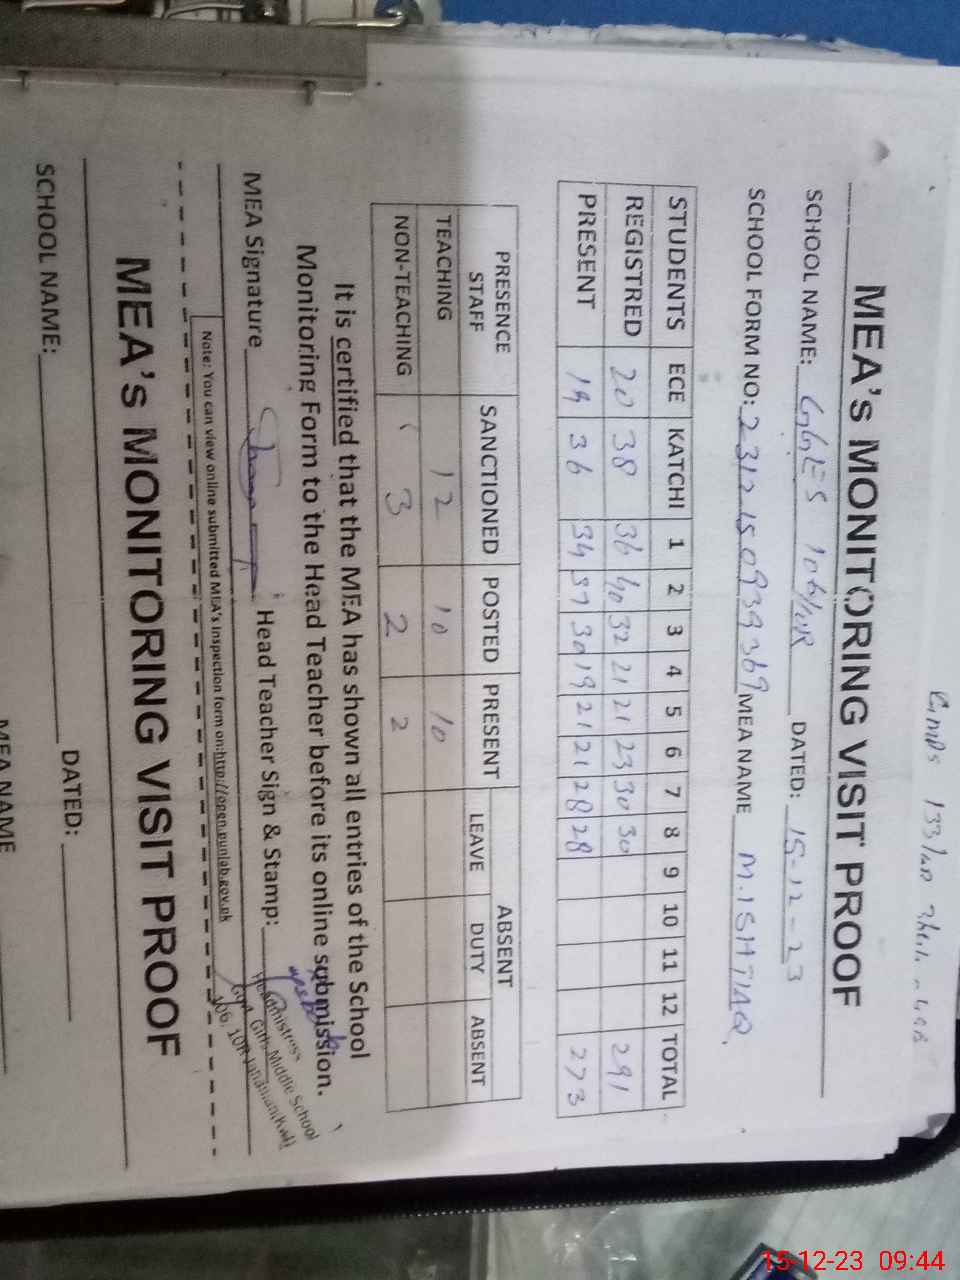 133/10R
MEA's MONITORING VISIT PROOF
SCHOOL NAME: GGES 106/10R DATED: 15-12-23
SCHOOL FORM NO: 2312150939369 MEA NAME M.ISHTIAQ
STUDENTS ECE KATCHI 1 2 3 4 5 6 7 8 9 10 11 12 TOTAL
REGISTRED 20 38 36 40 32 21 21 23 30 30 291
PRESENT 19 36 34 37 30 19 21 21 28 28 273
PRESENCE STAFF SANCTIONED POSTED PRESENT ABSENT
LEAVE DUTY ABSENT
TEACHING 12 10 10
NON-TEACHING 3 2 2
It is certified that the MEA has shown all entries of the School
Monitoring Form to the Head Teacher before its online submission.
MEA Signature Head Teacher Sign & Stamp:
Headmistress
Govt. Girls Middle School
106, 10R Jahanian(Kwl)
Note: You can view online submitted MEA's inspection form on:http://open.punjab.gov.pk
MEA's MONITORING VISIT PROOF
SCHOOL NAME: DATED:
MEA NAME
15-12-23 09:44